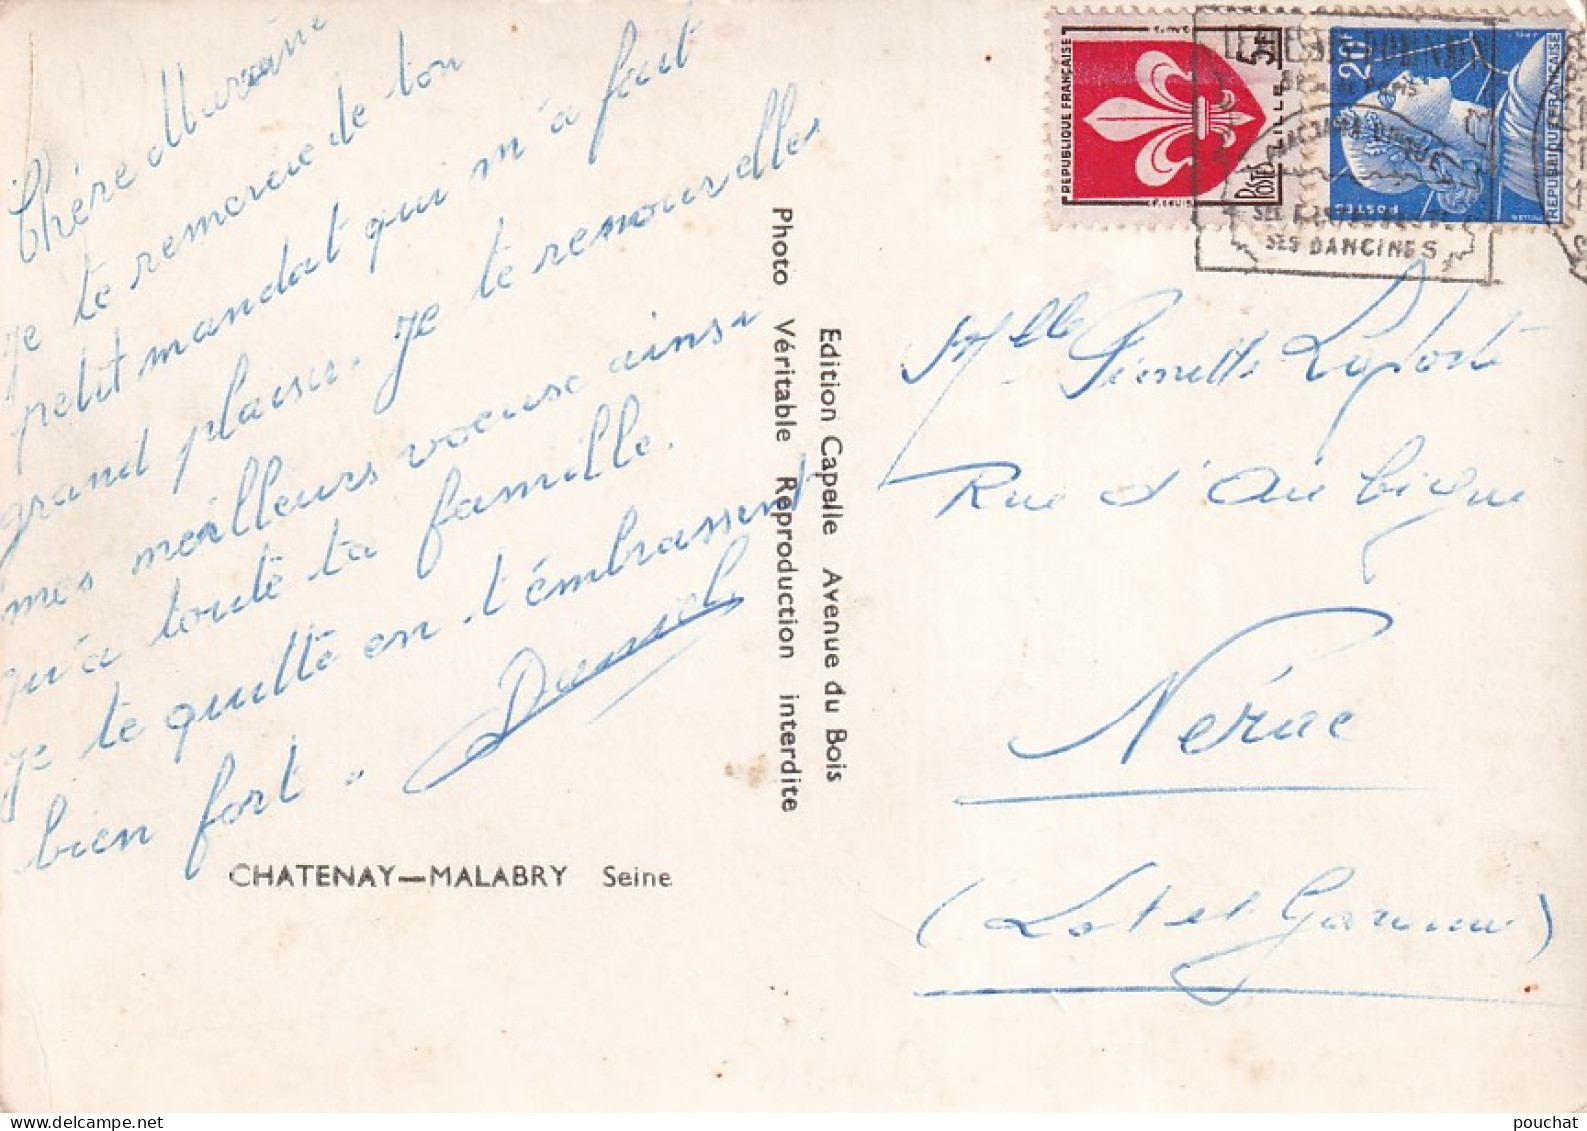 Chère Marraine
je te remercie de ton
petit mandat qui m'a fait
grand plaisir. Je te renouvelle
mes meilleurs voeuse ainsi
qu'a toute ta famille.
je te quitte en t'embrassent
bien fort.
Daniel
CHATENAY—MALABRY Seine
Photo Véritable Reproduction interdite
Edition Capelle Avenue du Bois
REPUBLIQUE FRANÇAISE
5F
LILLE
POSTES
20F
REPUBLIQUE FRANÇAISE
POSTES
MULLER
SES DANCINGS
Mlle Pierrette Laporte
Rue d'Aubigné
Nérac
(Lot et Garonne)
pouchat